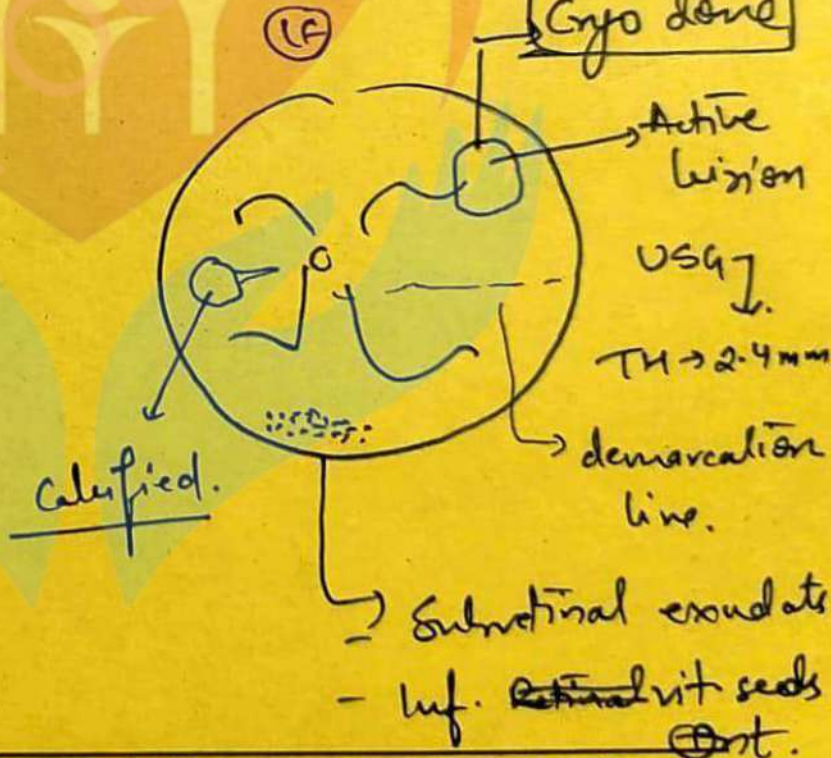 LE
Cryo done
Active
lision
USG
TH → 2.4 mm
demarcation
line.
Calcified.
- Subretinal exudats
- Inf. Retinal vit seeds